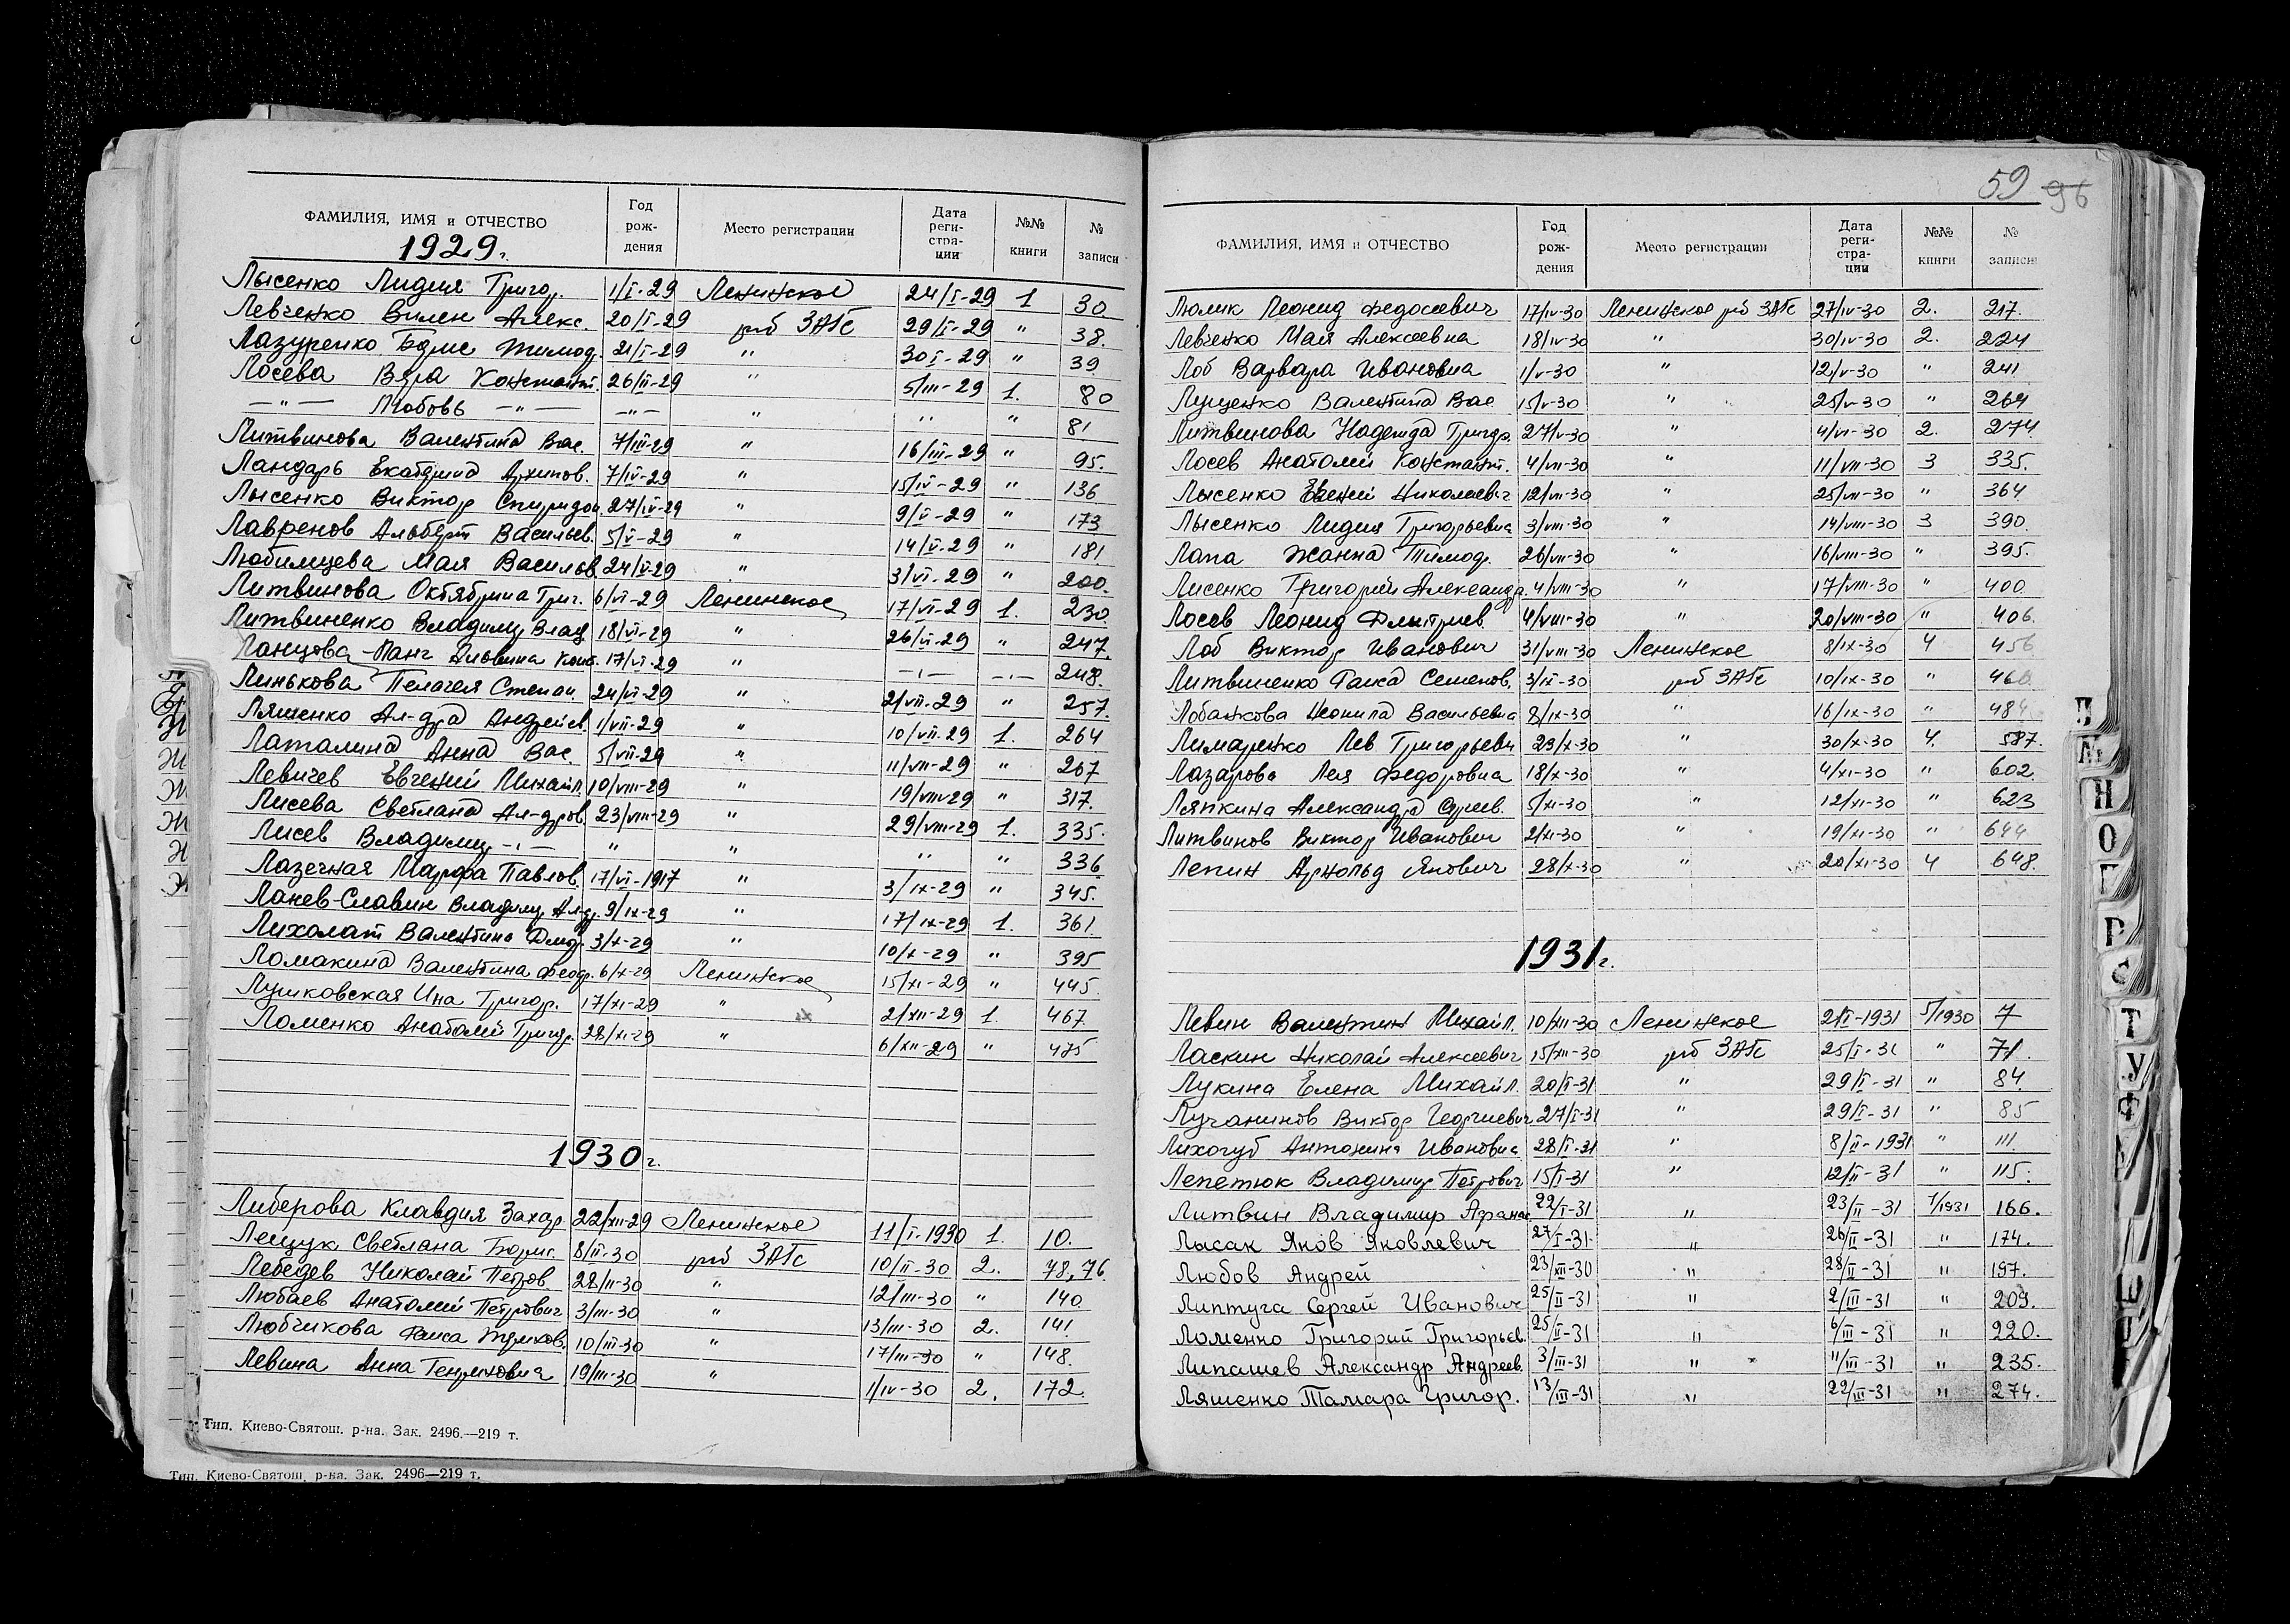 ФАМИЛИЯ, ИМЯ и ОТЧЕСТВО Год рож-дения Место регистрации Дата реги-стра-ции №№ книги № записи
1929 г.
Лысенко Лидия Григор. 1/I-29 Ленинское 24/I-29 1 30
Левченко Вилен Алекс. 20/I-29 рб ЗАГС 29/I-29 " 38.
Лазуренко Борис Тимоф. 21/I-29 " 30 I-29 " 39
Лосева Вера Констант. 26/II-29 " 5/III-29 1. 80
—"— Любовь —"— —"— " " " 81
Литвинова Валентина Вас. 7/III-29 " 16/III-29 " 95.
Ландарь Екатерина Архипов. 7/IV-29 " 15/IV-29 " 136
Лысенко Виктор Спиридон. 27/IV-29 " 9/V-29 " 173
Лавренов Альберт Васильев. 5/V-29 " 14/V-29 " 181
Любимцева Мая Васильв. 24/V-29 " 3/VI-29 " 200.
Литвинова Октябрина Григ. 6/VI-29 Ленинское 17/VI-29 1. 230
Литвиненко Владимир Влад. 18/VI-29 " 26/VI-29 " 247.
17/VI-29 " —"— —"— 248.
Линькова Пелагея Степан. 24/VI-29 " 2/VII-29 " 257.
Ляшенко Ал-дра Андреев. 1/VII-29 " 10/VII-29 1. 264
Латалина Анна Вас. 5/VII-29 " 11/VII-29 " 267
Левичев Евгений Михайл. 10/VIII-29 " 19/VIII-29 " 317.
Лисева Светлана Ал-дров. 23/VIII-29 " 29/VIII-29 1. 335.
Лисев Владимир —"— " " " " 336
Лазечная Марфа Павлов. 17/VI-1917 " 3/IX-29 " 345.
Ланев-Славин Владимир Ал-др. 9/IX-29 " 17/IX-29 1. 361.
Лихолат Валентина Дмитр. 3/X-29 " 10/X-29 " 395
Ломакина Валентина Федор. 6/X-29 Ленинское 15/XI-29 " 445
Лушковская Ина Григор. 17/XI-29 " 2/XII-29 1. 467
Ломенко Анатолий Григор. 28/XI-29 " 6/XII-29 " 475
1930 г.
Либерова Клавдия Захар. 22/XII-29 Ленинское 11/I-1930 1. 10.
Лещук Светлана Борис. 8/II-30 рб ЗАГС 10/II-30 2. 78,76
Лебедев Николай Петров 28/II-30 " 12/III-30 " 140
Любаев Анатолий Петрович 3/III-30 " 13/III-30 2. 141
Любчикова Раиса 10/III-30 " 17/III-30 " 148.
Левина Анна Генриховна 19/III-30 " 1/IV-30 2. 172.
Тип. Киево-Святош. р-на. Зак. 2496.—219 т.
Тип. Киево-Святош. р-на. Зак. 2496—219 т.
59 96
ФАМИЛИЯ, ИМЯ и ОТЧЕСТВО Год рож-дения Место регистрации Дата реги-стра-ции №№ книги № записи
Люлик Леонид Федосеевич 17/IV-30 Ленинское рб ЗАГС 27/IV-30 2. 217.
Левченко Мая Алексеевна 18/IV-30 " 30/IV-30 2. 224
Лоб Варвара Ивановна 1/V-30 " 12/V-30 " 241
Луценко Валентина Вас. 15/V-30 " 25/V-30 " 264
Литвинова Надежда Григор. 27/V-30 " 4/VI-30 2. 274.
Лосев Анатолий Констант. 4/VII-30 " 11/VII-30 3 335.
Лысенко Евгений Николаевич 12/VII-30 " 25/VII-30 " 364
Лысенко Лидия Григорьевна 3/VIII-30 " 14/VIII-30 3 390.
Лапа Жанна Тимоф. 26/VII-30 " 16/VIII-30 " 395.
Лисенко Григорий Александр. 4/VIII-30 " 17/VIII-30 " 400.
Лосев Леонид Дмитриев. 4/VIII-30 " 20/VIII-30 " 406.
Лоб Виктор Иванович 31/VIII-30 Ленинское 8/IX-30 4 456
Литвиненко Раиса Семенов. 3/IX-30 рб ЗАГС 10/IX-30 " 460
Лобанкова Неонила Васильевна 8/IX-30 " 16/IX-30 " 484
Лимаренко Лев Григорьевич 29/X-30 " 30/X-30 4. 587.
Лазарова Лея Федоровна 18/X-30 " 4/XI-30 " 602.
Ляпкина Александра Сергеев. 5/XI-30 " 12/XI-30 " 623
Литвинов Виктор Иванович 2/XI-30 " 19/XI-30 " 644
Лепин Арнольд Янович 28/X-30 " 20/XI-30 4 648.
1931 г.
Левин Валентин Михайл. 10/XII-30 Ленинское 2/I-1931 5/1930 7
Ласкин Николай Алексеевич 15/XII-30 рб ЗАГС 25/I-31 " 71.
Лукина Елена Михайл. 20/I-31 " 29/I-31 " 84
Лучанинов Виктор Георгиевич 27/I-31 " 29/I-31 " 85
Лихогуб Антонина Ивановна 28/I-31 " 8/II-1931 " 111.
Лепетюк Владимир Петрович 15/I-31 " 12/II-31 " 115.
Литвин Владимир Афанас. 22/I-31 " 23/II-31 1/1931 166.
Лысак Яков Яковлевич 27/I-31 " 26/II-31 " 174.
Любов Андрей 23/XII-30 " 28/II-31 " 197.
Липтуга Сергей Иванович 25/II-31 " 2/III-31 " 209.
Ломенко Григорий Григорьев. 25/II-31 " 6/III-31 " 220.
Липашев Александр Андреев. 3/III-31 " 11/III-31 " 235.
Ляшенко Тамара Григор. 13/III-31 " 22/III-31 " 274.
М
Н
О
П
Р
С
Т
У
Ф
Ш